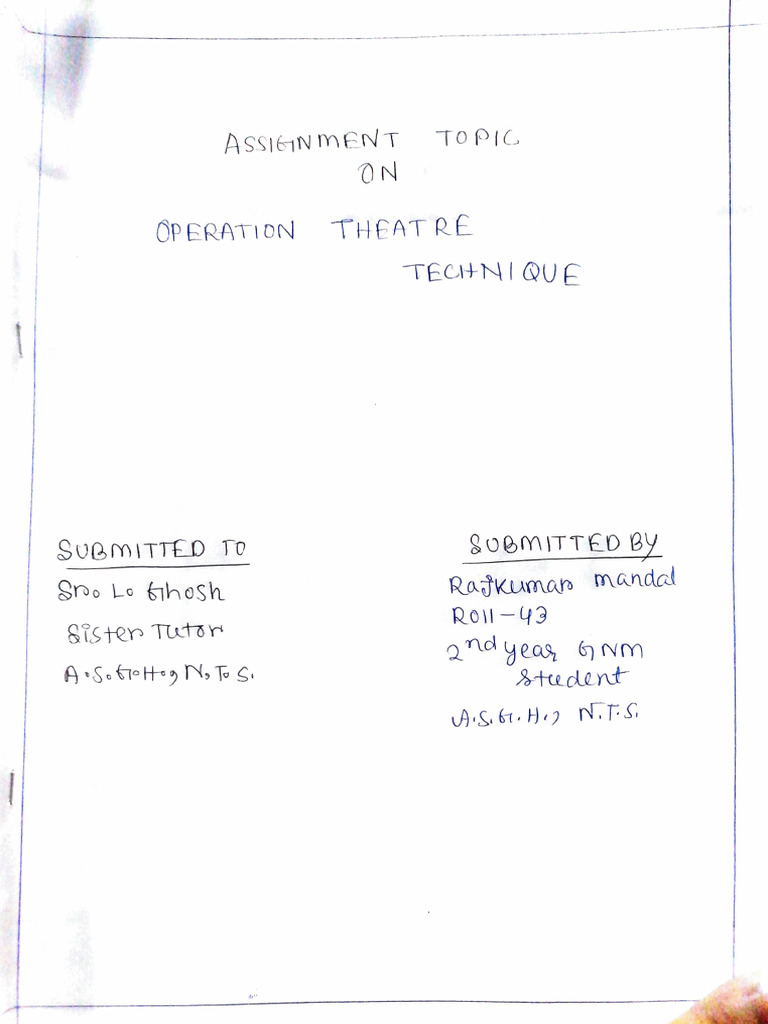 ASSIGNMENT TOPIC
ON
OPERATION THEATRE
TECHNIQUE
SUBMITTED TO
Sr. L. Ghosh
Sister Tutor
A.S.G.H., N.T.S.
SUBMITTED BY
Rajkumar Mandal
Roll-43
2nd year GNM
Student
A.S.G.H., N.T.S.